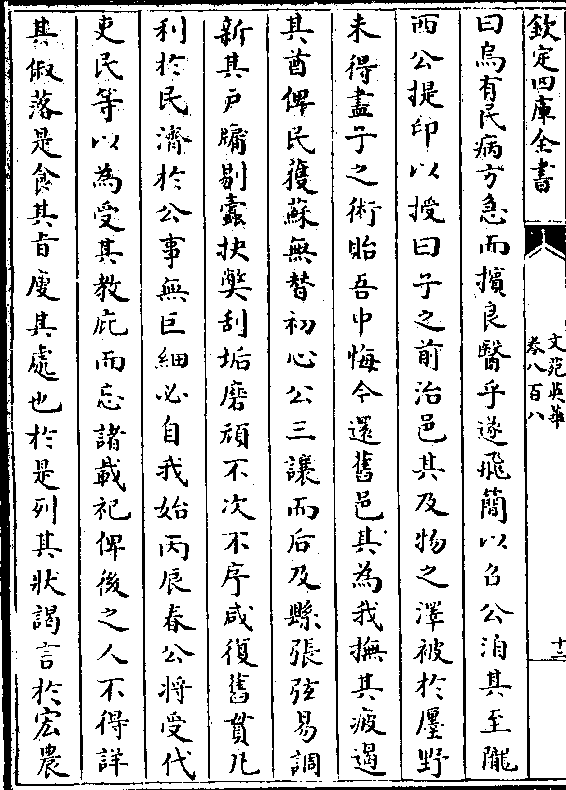 欽定四庫全書
文苑英華
卷八百八
十二
曰烏有民病方急而擯良醫乎遂飛簡以召公洎其至隴
西公提印以授曰子之前治邑其及物之澤被於廛野
未得盡子之術貽吾中悔今還舊邑其為我撫其疲遏
其酋俾民獲蘇無替初心公三讓而后及縣張弦易調
新其戸牖剔蠹抉獘刮垢磨頑不次不序咸復舊貫凡
利於民濟於公事無巨細必自我始丙辰春公將受代
吏民等以為受其教庇而忘諸載祀俾後之人不得詳
其俶落是食其旨廋其處也於是列其狀謁言於宏農